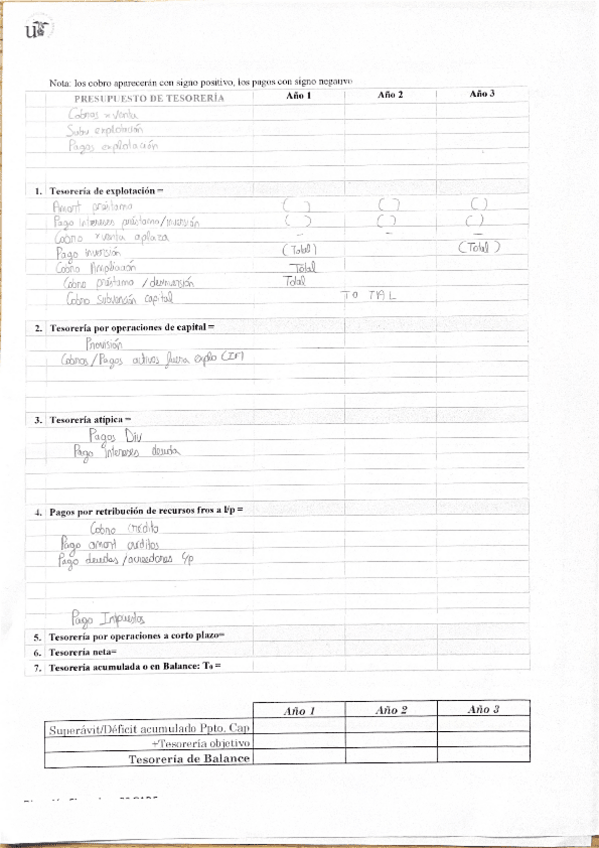 us
Nota: los cobro aparecerán con signo positivo, los pagos con signo negativo
PRESUPUESTO DE TESORERÍA Año 1 Año 2 Año 3
Cobros x venta
Subv explotación
Pagos explotación
1. Tesorería de explotación =
Amort préstamo ( ) ( ) ( )
Pago intereses préstamo/inversión ( ) ( ) ( )
Cobro x venta aplaza - - -
Pago inversión (Total) (Total)
Cobro Ampliación Total
Cobro préstamo /desinversión Total
Cobro subvención capital TOTAL
2. Tesorería por operaciones de capital =
Provisión
Cobros/Pagos activos fuera explo (IF)
3. Tesorería atípica =
Pagos Div
Pago intereses deuda
4. Pagos por retribución de recursos fros a l/p =
Cobro crédito
Pago amort créditos
Pago deudas /acreedores c/p
Pago Impuestos
5. Tesorería por operaciones a corto plazo=
6. Tesorería neta=
7. Tesorería acumulada o en Balance: T₀ =
Año 1 Año 2 Año 3
Superávit/Déficit acumulado Ppto. Cap
+Tesorería objetivo
Tesorería de Balance